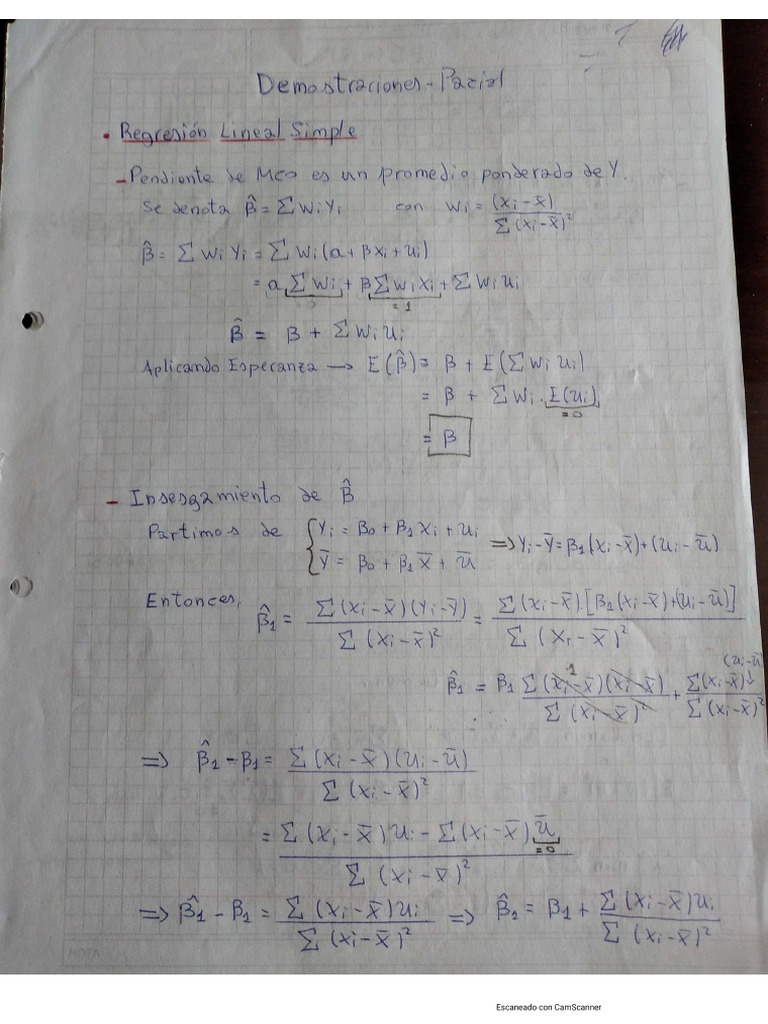 Demostraciones - Parcial
• Regresión Lineal Simple
- Pendiente de MCO es un promedio ponderado de Y.
Se denota β̂ = Σ Wi Yi con Wi = (Xi - X̄) / Σ (Xi - X̄)²
β̂ = Σ Wi Yi = Σ Wi (a + βXi + Ui)
= a Σ Wi + β Σ Wi Xi + Σ Wi Ui
= 0 = 1
β̂ = β + Σ Wi Ui
Aplicando Esperanza → E(β̂) = β + E(Σ Wi Ui)
= β + Σ Wi . E(Ui)
= 0
= β
- Insesgamiento de β̂
Partimos de { Yi = β0 + β1 Xi + Ui
Ȳ = β0 + β1 X̄ + Ū
⇒ Yi - Ȳ = β1 (Xi - X̄) + (Ui - Ū)
Entonces, β̂1 = Σ (Xi - X̄)(Yi - Ȳ) / Σ (Xi - X̄)² = Σ (Xi - X̄).[β1 (Xi - X̄) + (Ui - Ū)] / Σ (Xi - X̄)²
β̂1 = β1 Σ (Xi - X̄)(Xi - X̄) / Σ (Xi - X̄)² + Σ (Xi - X̄)(Ui - Ū) / Σ (Xi - X̄)²
1
⇒ β̂1 - β1 = Σ (Xi - X̄)(Ui - Ū) / Σ (Xi - X̄)²
= Σ (Xi - X̄) Ui - Σ (Xi - X̄) Ū / Σ (Xi - X̄)²
= 0
⇒ β̂1 - β1 = Σ (Xi - X̄) Ui / Σ (Xi - X̄)² ⇒ β̂1 = β1 + Σ (Xi - X̄) Ui / Σ (Xi - X̄)²
Escaneado con CamScanner